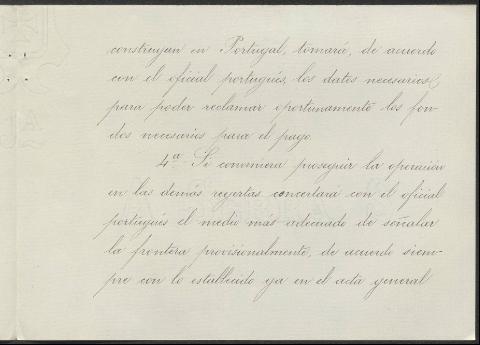 construyan en Portugal, tomará, de acuerdo
con el oficial portugués, los datos necesarios
para poder reclamar oportunamente los fon-
dos necesarios para el pago.
4ª Si conviniera proseguir la operación
en las demás regertas concertará con el oficial
portugués el medio más adecuado de señalar
la frontera provisionalmente, de acuerdo siem-
pre con lo establecido ya en el acta general